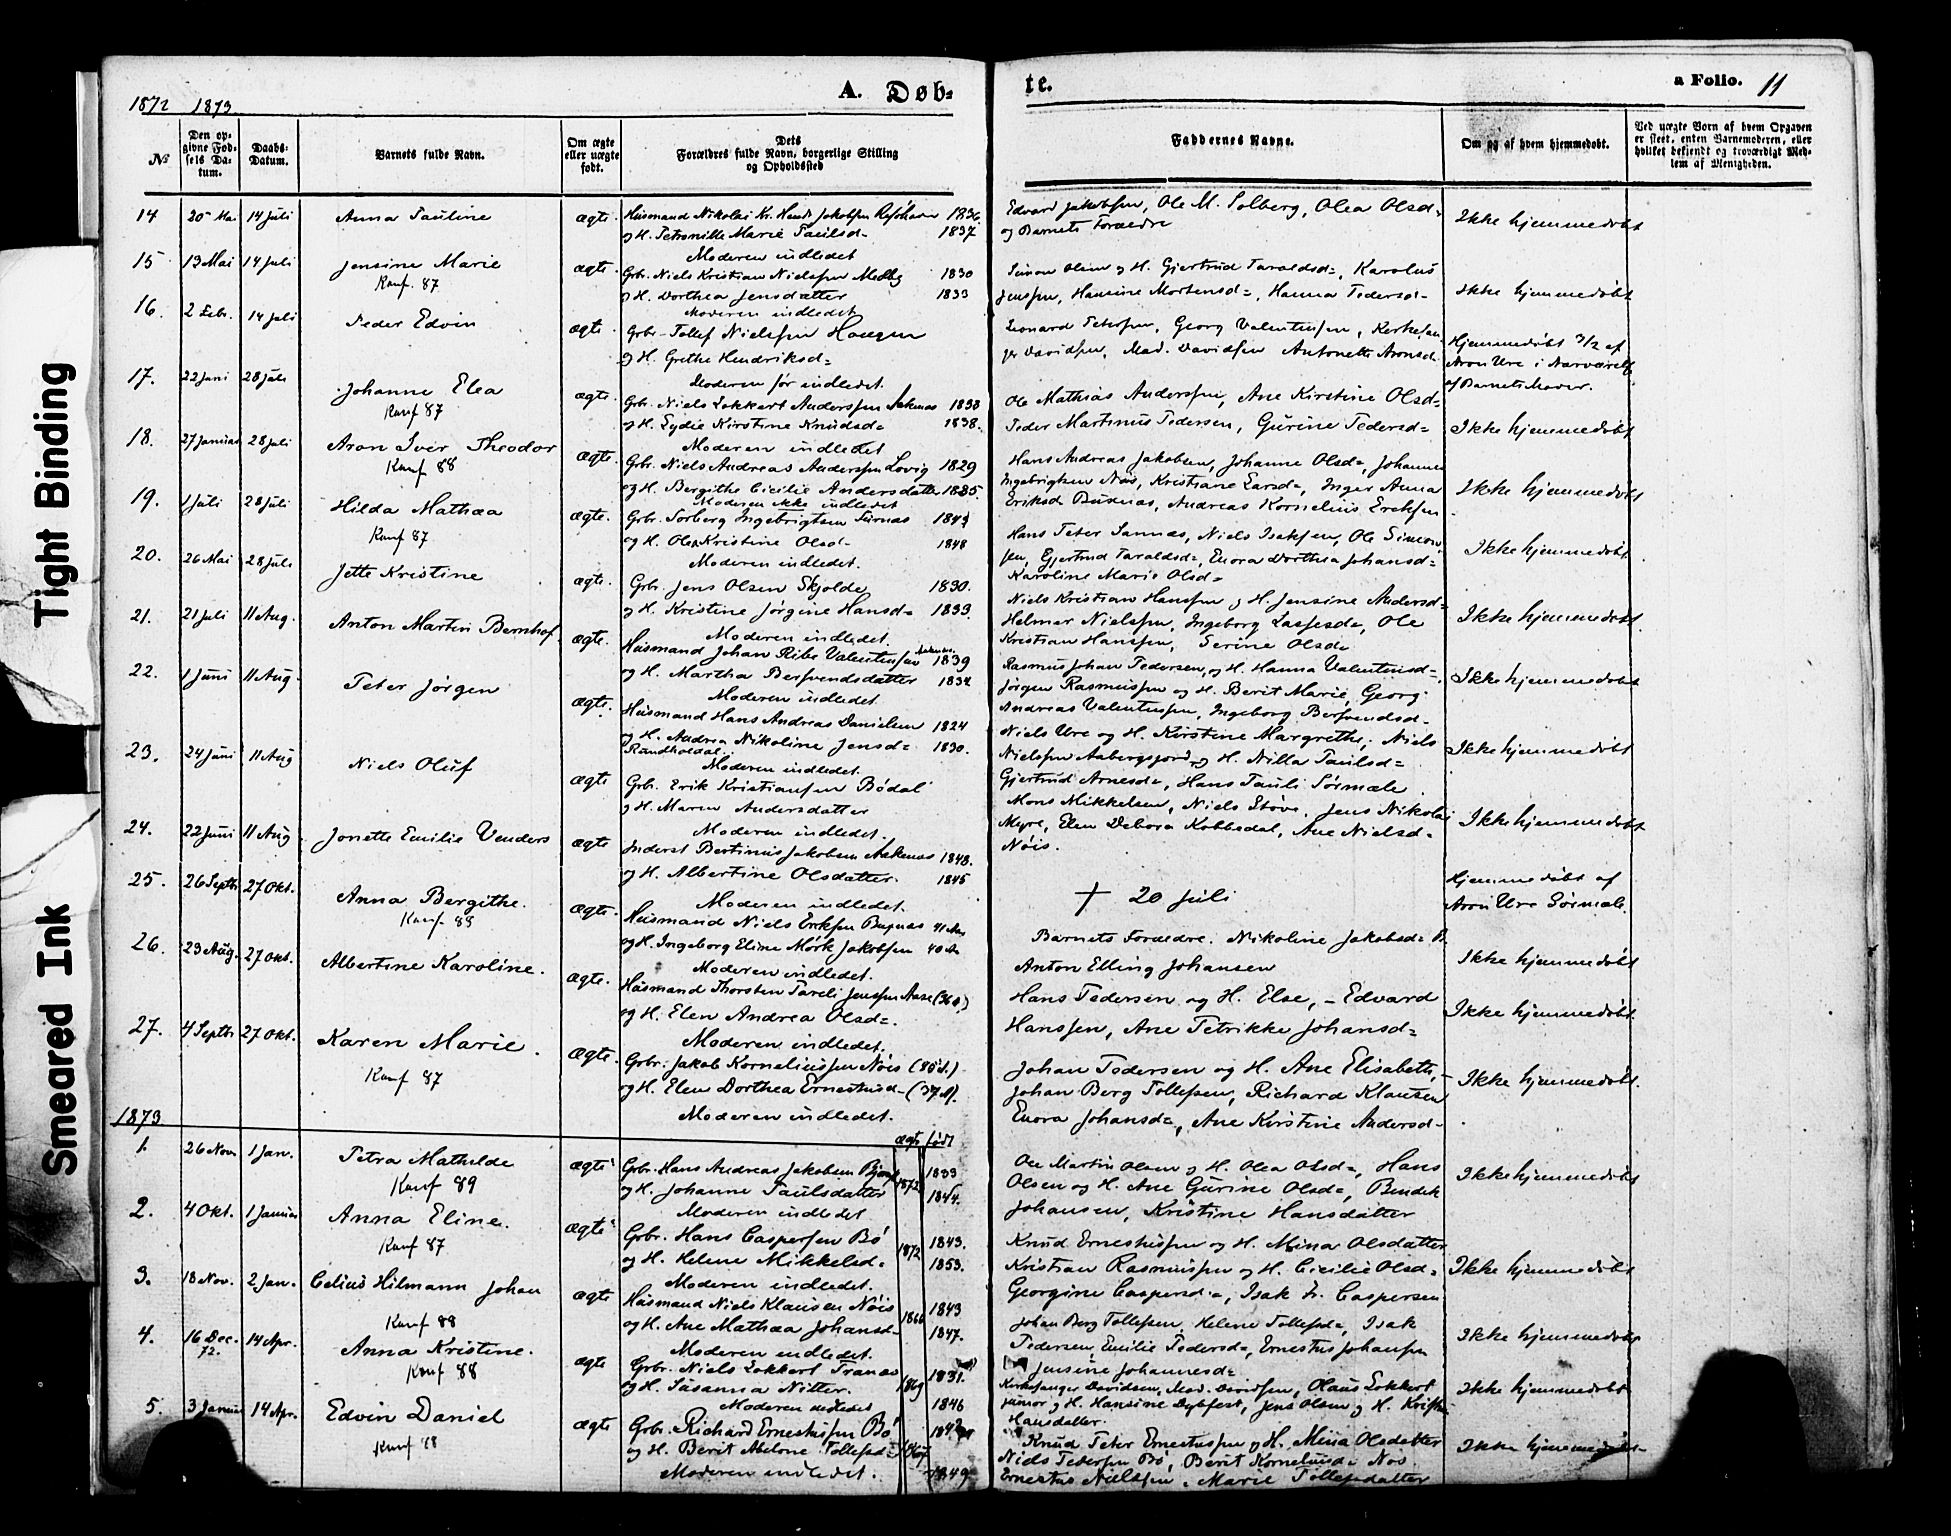 1872 1873
A. Døb-
te.
a Folio. 11
№
Den opgivne Fødsels Datum.
Daabs-Datum.
Barnets fulde Navn.
Om ægte eller uægte født.
Dets Forældres fulde Navn, borgerlige Stilling og Opholdssted
Faddernes Navne.
Om og af hvem hjemmedøbt.
Ved uægte Børn af hvem Opgaven er skeet, enten Barnemoderen, eller hvilket bekjendt og troværdigt Medlem af Menigheden.
14 20 Mai 14 Juli Anna Pauline ægte. Husmand Nikolai Kr. Jakobsen 1836
og H. Petronille Marie Paulsd- 1837
Moderen indledet
Edvard Jakobsen, Ole M. Solberg, Olea Olsd-
og Barnets Forældre
Ikke hjemmedøbt
15 13 Mai 14 Juli Jensine Marie ægte. Grb. Niels Kristian Nielsen Medby 1830
Konf. 87
og H. Dorthea Jensdatter 1833
Moderen indledet
Simon Olsen og H. Gjertrud Taraldsd=, Karolus
Jensen, Hansine Mortensd=, Hanna Pedersd-
Ikke hjemmedøbt
16. 2 Febr. 14 Juli Peder Edvin ægte. Grb. Tollef Nielsen Haugen
og H. Grethe Hendriksd=
Moderen før indledet.
Leonard Petersen, Georg Valentinsen, Kirkesan
ger Davidsen, Mad. Davidsen Antonette Aronsd.
Hjemmedøbt 3/2 af
Aron Ure i Nærværelse
af Barnets Moder.
17. 22 Juni 28 Juli Johanne Elea ægte. Grb. Niels Lokkert Andersen Aakenes 1838
Konf 87
og H. Lydie Kirstine Knudsd= 1838.
Moderen indledet
Ole Mathias Andersen, Ane Kirstine Olsd=
Peder Martinus Pedersen, Gurine Pedersd=
Ikke hjemmedøbt
18. 27 Januar 28 Juli Aron Iver Theodor ægte. Grb. Niels Andreas Andersen Lovig 1829
Konf 88
og H. Bergithe Cicilie Andersdatter 1835.
Moderen ikke indledet
Hans Andreas Jakobsen, Johanne Olsd=, Johannes
Ingebrigtsen Nøis, Kristiane Larsd=, Inger Anna
Eriksd Buknes, Andreas Kornelius Eriksen
Ikke hjemmedøbt
19. 1 Juli 28 Juli Hilda Mathea ægte. Grb. Sorberg Ingebrigtsen 1843
Konf 87
og H. Olea Kristine Olsd- 1848
Moderen indledet.
Hans Peter Sannes, Niels Isaksen, Ole Simon
sen, Gjertrud Taraldsd=, Enora Dorthea Johansd=
Karoline Marie Olsd=
Ikke hjemmedøbt.
20. 26 Mai 28 Juli Jette Kristine ægte. Grb. Jens Olsen Skjolde 1830.
og H. Kristine Jørgine Hansd= 1833.
Moderen indledet.
Niels Kristian Hansen og H. Jensine Andersd=
Helmer Nielsen, Ingeborg Lassesd=, Ole
Kristian Hansen, Serine Olsd=
Ikke hjemmedøbt.
21. 21 Juli 11 Aug. Anton Martin Bernhof. ægte. Husmand Johan Ribe Valentinsen 1839
og H. Martha Bersvendsdatter 1834
Moderen indledet.
Rasmus Johan Pedersen, og H. Hanna Valentinsd=,
Jørgen Rasmussen og H. Berit Marie, Georg
Andreas Valentinsen, Ingeborg Bersvendsd-
Ikke hjemmedøbt
22. 1 Juni 11 Aug. Peter Jørgen ægte. Husmand Hans Andreas Danielsen 1824
og H. Andrea Nikoline Jensd= 1830.
Moderen indledet.
Niels Ure og H. Kirstine Margrethe, Niels
Nielsen Aabergsjord og H. Nilla Paulsd=
Gjertrud Arnesd=, Hans Pauli Sørmæle.
Ikke hjemmedøbt
23. 24 Juni 11 Aug Niels Oluf ægte Grb. Erik Kristiansen Bødal
og H. Maren Andersdatter
Moderen indledet.
Mons Mikkelsen, Niels Støve, Jens Nikolai
Myre, Elen Debora Kobbedal, Ane Nielsd=
Nøis.
Ikke hjemmedøbt
24. 22 Juni 11 Aug Jonette Emilie Venders ægte Inderst Bertinius Jakobsen Aakenes 1848.
og H. Albertine Olsdatter. 1845
Moderen indledet.
† 20 Juli
Hjemmedøbt af
Aron Ure Sørmæle.
25. 26 Septr 27 Okt. Anna Bergithe. ægte. Husmand Niels Eriksen Buknes 41 Aar
Konf. 88
og H. Ingeborg Eline Mørk Jakobsen 40 A
Moderen indledet.
Barnets Forældre. Nikoline Jakobsd= B.
Anton Elling Johansen
Ikke hjemmedøbt
26. 23 Aug. 27 Okt. Albertine Karoline. ægte. Husmand Thorsten Pareli Jensen Aase (36 A.)
og H. Elen Andrea Olsd=.
Moderen indledet.
Hans Pedersen og H. Else, - Edvard
Hansen, Ane Petrikke Johansd=
Ikke hjemmedøbt.
27. 4 Septr 27 Okt. Karen Marie. ægte. Grb. Jakob Korneliussen Nøis (35 A.)
Konf 87
og H. Elen Dorthea Ernestusd- (37 A).
Moderen indledet.
Johan Pedersen og H. Ane Elisabeth, -
Johan Berg Tollefsen, Richard Klausen
Enora Johansd=, Ane Kirstine Andersd-
Ikke hjemmedøbt.
1873
ægte født
1. 26 Novr 1 Jan. Petra Mathilde ægte Grb. Hans Andreas Jakobsen 1872 1833
Konf 89
og H. Johanne Paulsdatter 1844.
Moderen indledet
Ole Martin Olsen og H. Olea Olsd=, Hans
Olsen og H. Ane Gurine Olsd=, Bendik
Johansen, Kristine Hansdatter
Ikke hjemmedøbt
2. 4 Okt. 1 Januar Anna Eline. ægte Grb. Hans Caspersen Bø 1872 1843.
Konf 87
og H. Helene Mikkelsd. 1853.
Moderen indledet.
Knud Ernestussen og H. Mina Olsdatter
Kristian Rasmussen og H. Cicilie Olsd=
Georgine Caspersd=, Isak Fr. Caspersen
Ikke hjemmedøbt
3. 18 Nov. 2 Jan. Celius Hilmann Johan ægte Husmand Niels Klausen Nøis 1866 1843
Konf 88
og H. Ane Mathea Johansd- 1847.
Moderen indledet.
Johan Berg Tollefsen, Helene Tollefsd=, Isak
Pedersen, Emilie Pedersd=, Ernestus Johansen
Jensine Johannesd=
Ikke hjemmedøbt
4. 16 Dec. 72. 14 Apr. Anna Kristine. ægte Grb. Niels Lokkert Tranes 1869 1831.
Konf 88
og H. Susanna Nitter. 1846
Moderen indledet
Kirkesanger Davidsen, Mad. Davidsen, Olaus Lokkert
junior og H. Hansine Dybfest, Jens Olsen og H. Kristine
Hansdatter.
Ikke hjemmedøbt
5. 3 Januar 14 Apr. Edvin Daniel ægte Grb. Richard Ernestussen Bø 1842
Konf 88
og H. Berit Abelone Tollefsd= 1849
Moderen indledet.
Knud Peter Ernestussen og H. Mina Olsdatter
Niels Pedersen Bø, Berit Kornelusd= Nøs.
Ernestus Nielsen, Marie Tollefsdatter
Ikke hjemmedøbt
Tight Binding
Smeared Ink